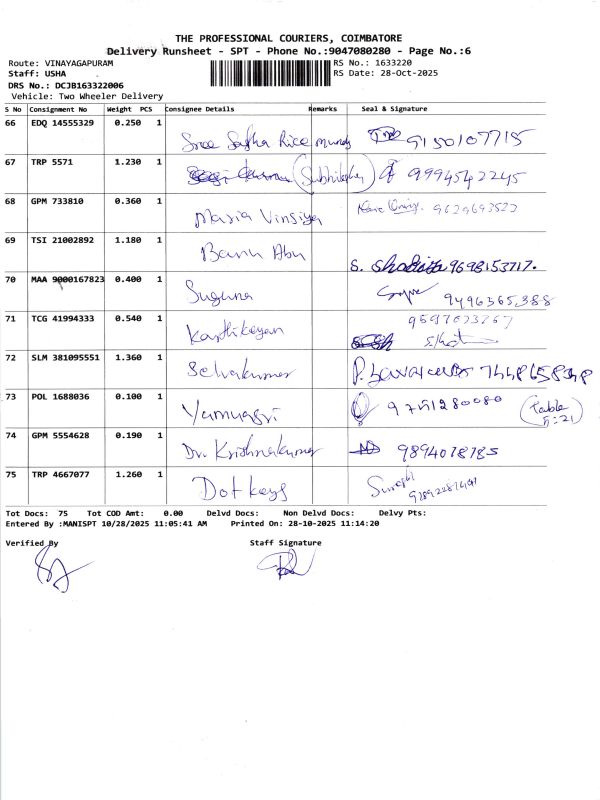 THE PROFESSIONAL COURIERS, COIMBATORE
Delivery Runsheet - SPT - Phone No.:9047080280 - Page No.:6
Route: VINAYAGAPURAM RS No.: 1633220
Staff: USHA RS Date: 28-Oct-2025
DRS No.: DCJB163322006
Vehicle: Two Wheeler Delivery
S No Consignment No Weight PCS Consignee Details Remarks Seal & Signature
66 EDQ 14555329 0.250 1
Rice mundy 9150107715
67 TRP 5571 1.230 1
9994542245
68 GPM 733810 0.360 1
Maria Vinsiya
69 TSI 21002892 1.180 1
Banu Abu
S. 9698153717.
70 MAA 9000167823 0.400 1
Suguna
9496365388
71 TCG 41994333 0.540 1
Karthikeyan
72 SLM 381095551 1.360 1
Selvakumar
73 POL 1688036 0.100 1
9751280080 (Table 5:21)
74 GPM 5554628 0.190 1
Dr. Krishnakumar 9894078785
75 TRP 4667077 1.260 1
Dot keys
Tot Docs: 75 Tot COD Amt: 0.00 Delvd Docs: Non Delvd Docs: Delvy Pts:
Entered By :MANISPT 10/28/2025 11:05:41 AM Printed On: 28-10-2025 11:14:20
Verified By Staff Signature